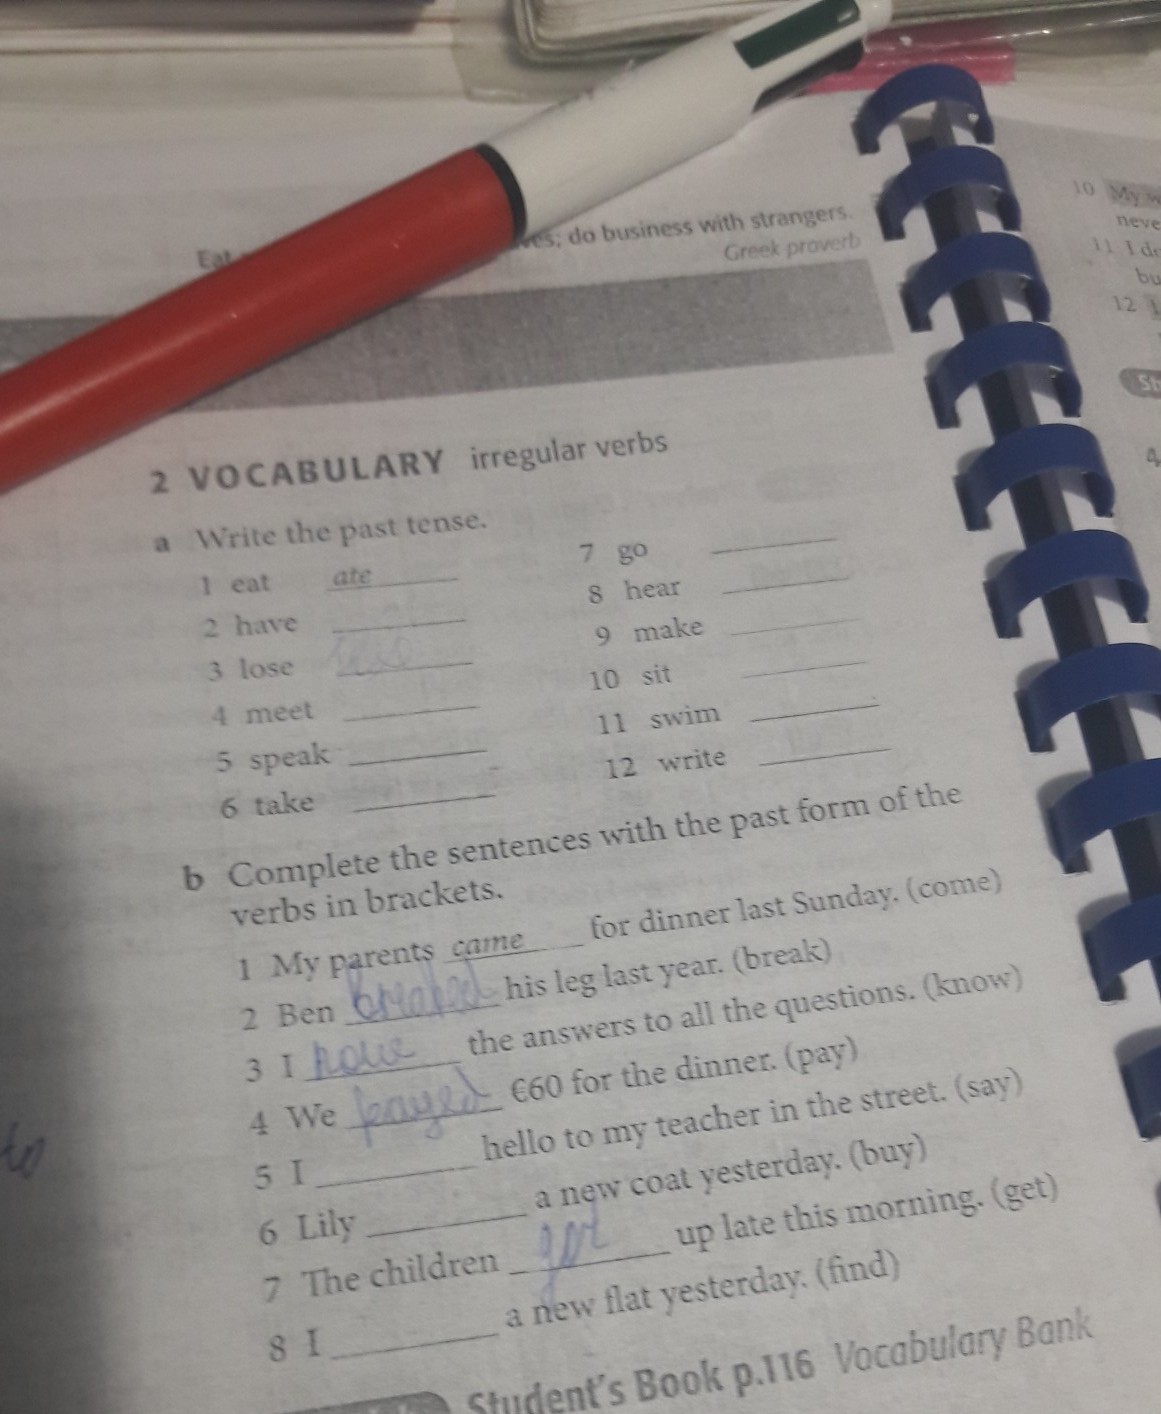 Eat
ves; do business with strangers.
Greek proverb
2 VOCABULARY irregular verbs
a Write the past tense.
1 eat ate
2 have
3 lose
4 meet
5 speak
6 take
7 go
8 hear
9 make
10 sit
11 swim
12 write
b Complete the sentences with the past form of the
verbs in brackets.
1 My parents came for dinner last Sunday. (come)
2 Ben breaked his leg last year. (break)
3 I the answers to all the questions. (know)
4 We payed €60 for the dinner. (pay)
5 I hello to my teacher in the street. (say)
6 Lily a new coat yesterday. (buy)
7 The children got up late this morning. (get)
8 I a new flat yesterday. (find)
Student's Book p.116 Vocabulary Bank
to
10 My w
neve
11 I do
bu
12
4